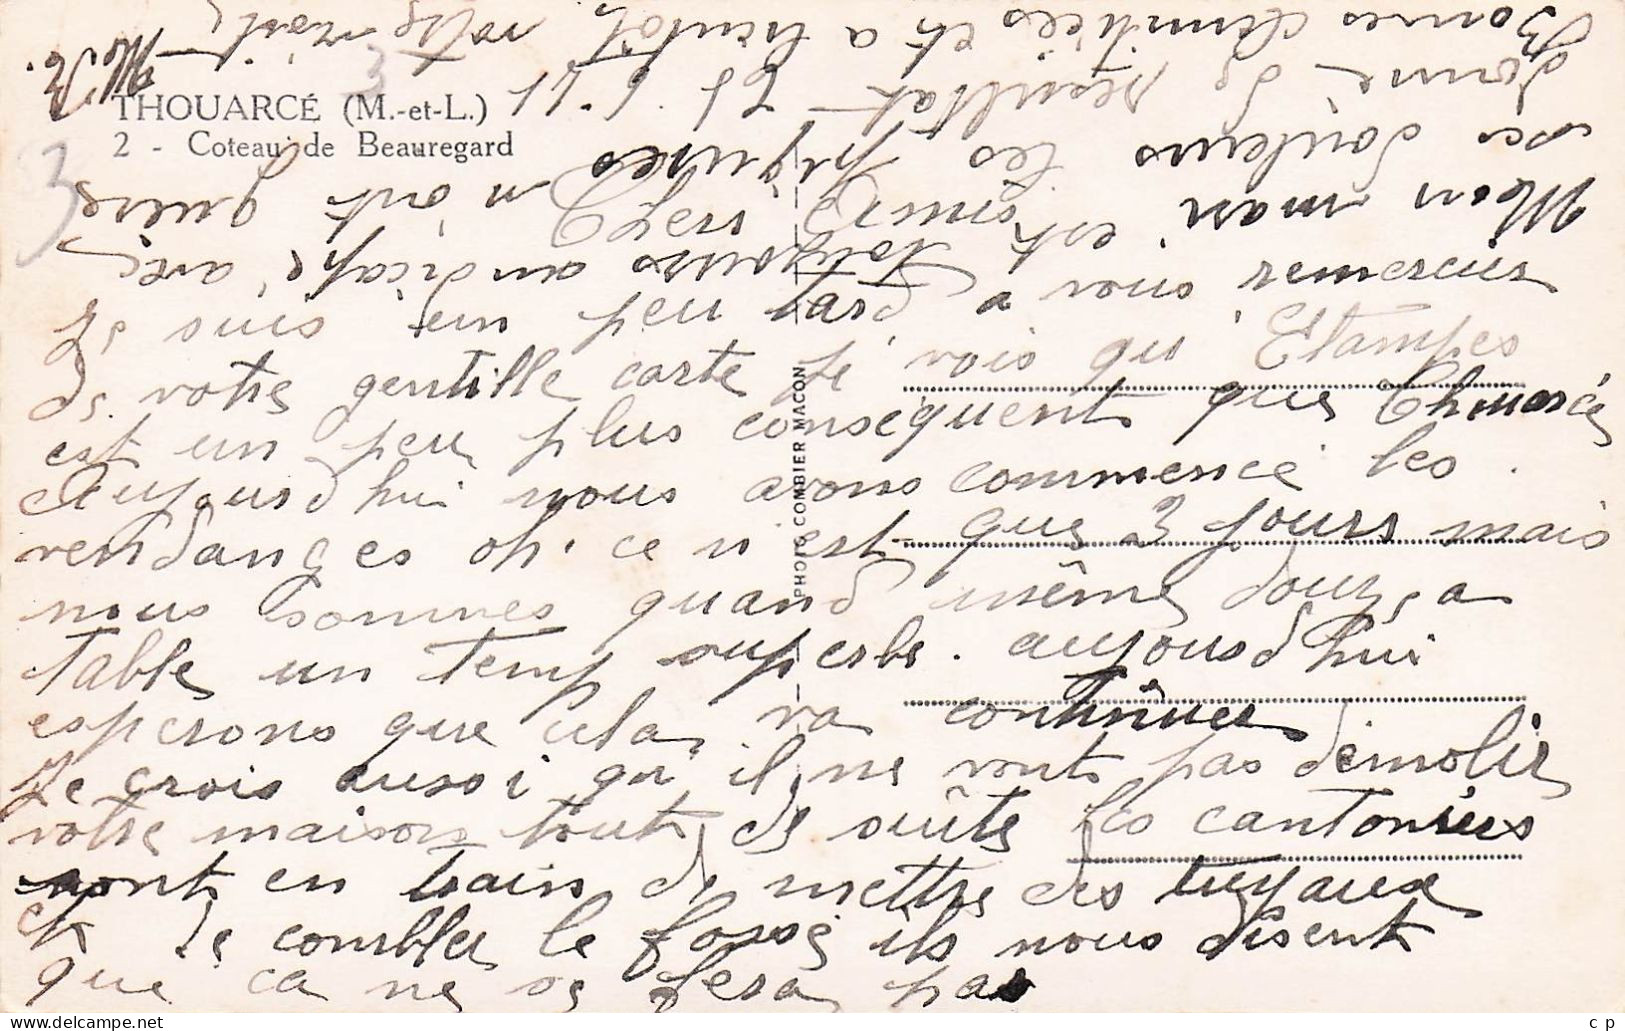 THOUARCÉ (M.-et-L.)
2 - Coteau de Beauregard
PHOTO COMBIER MACON
Je suis un peu tard a vous remercier
de votre gentille carte je vois qu'Etampes
est un peu plus consequent que Thouarcé
Aujourd'hui nous avons commencé les
vendanges oh. ce n'est que 3 jours mais
nous sommes quand même douze a
table un temp superbe. aujourd'hui
esperons que cela va continuer
Je crois aussi qu'il ne vont pas démolir
votre maison tout de suite les cantoniers
sont en train de mettre des tuyaux
et de combler le fossé ils nous disent
que ca ne se fera pas
Mon mari est toujours andicapé avec
ses douleurs les piqures n'ont guere
donné de resultat
Bonnes amitiés et a bientôt votre visite
3
3
c p